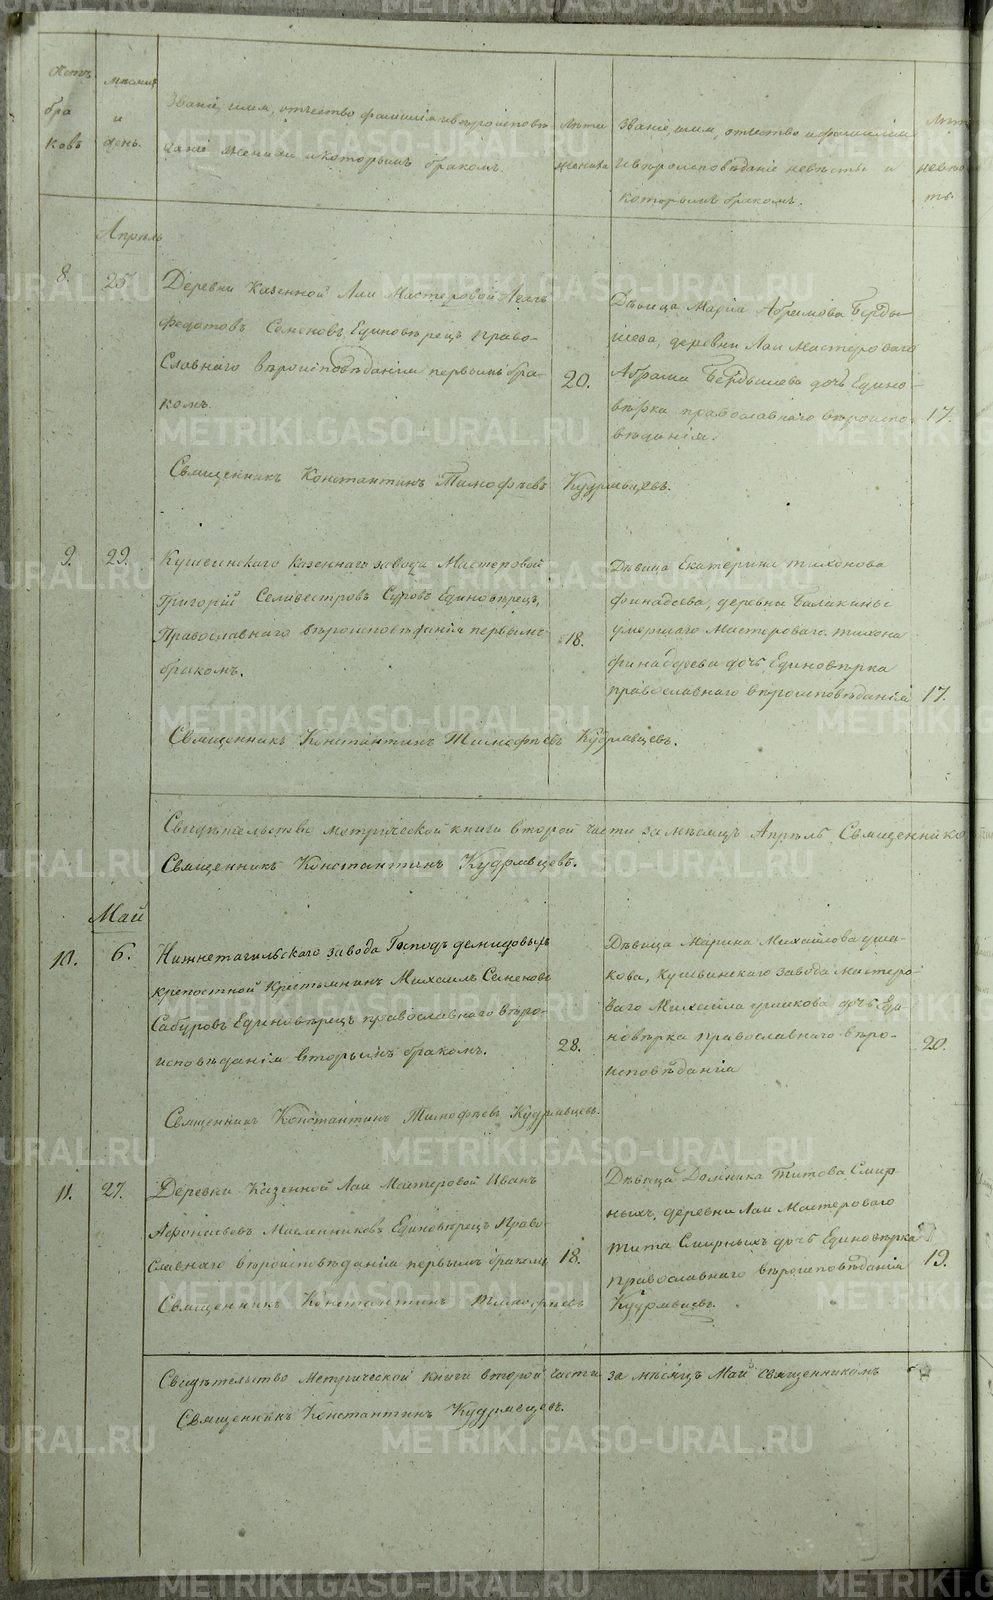 Счетъ
бра
ковъ
Месяцъ
и
день.
Званіе, имя, отчество фамилія и вѣроисповѣ
даніе жениха и которымъ бракомъ.
Лѣта
жениха
Званіе, имя, отчество и фамилія
и вѣроисповѣданіе невѣсты и
которымъ бракомъ.
Лѣта
невѣс
ты.
Апрѣль
8.
25
Деревни Казенной Лаи Мастеровой
Федотовъ Единовѣрецъ право-
славнаго вѣроисповѣданія первымъ бра-
комъ.
20.
Дѣвица Марія Абрамова Берды
шева, деревни Лаи Мастероваго
Абрама Бердышева дочь Едино-
вѣрка православнаго вѣроиспо-
вѣданія.
17.
Священникъ Константинъ Тимофѣевъ Кудрявцевъ.
9.
29.
Кушвинскаго казеннаго завода Мастеровой
Григорій Селивестровъ Суровъ Единовѣрецъ,
Православнаго вѣроисповѣданія первымъ
бракомъ.
18.
Дѣвица Екатерина Тихонова
Финадеева, деревни Балакины
умершаго Мастероваго Тихона
Финадеева дочь Единовѣрка
православнаго вѣроисповѣданія
17.
Священникъ Константинъ Тимофѣевъ Кудрявцевъ.
Свидѣтельство метрической книги второй части за мѣсяцъ Апрѣль Священнико
Священникъ Константинъ Кудрявцевъ.
Май
10.
6.
Нижнетагильскаго завода Господъ Демидовыхъ
крепостной Крестьянинъ Михаилъ Семеновъ
Сабуровъ Единовѣрецъ православнаго вѣро-
исповѣданія вторымъ бракомъ.
28.
Дѣвица Марина Михайлова Уша-
кова, Кушвинскаго завода мастеро-
ваго Михаила Ушакова дочь Еди-
новѣрка православнаго вѣро-
исповѣданія
20.
Священникъ Константинъ Тимофѣевъ Кудрявцевъ.
11.
27.
Деревни Казенной Лаи Мастеровой Иванъ
Афонасьевъ Масленниковъ Единовѣрецъ Право-
славнаго вѣроисповѣданія первымъ бракомъ
18.
Дѣвица Домника Титова Смир
ныхъ, деревни Лаи Мастероваго
Тита Смирныхъ дочь Единовѣрка
православнаго вѣроисповѣданія
19.
Священникъ Константинъ Тимофѣевъ Кудрявцевъ.
Свидѣтельство Метрической книги второй части за мѣсяцъ Май священникомъ
Священникъ Константинъ Кудрявцевъ.
METRIKI.GASO-URAL.RU